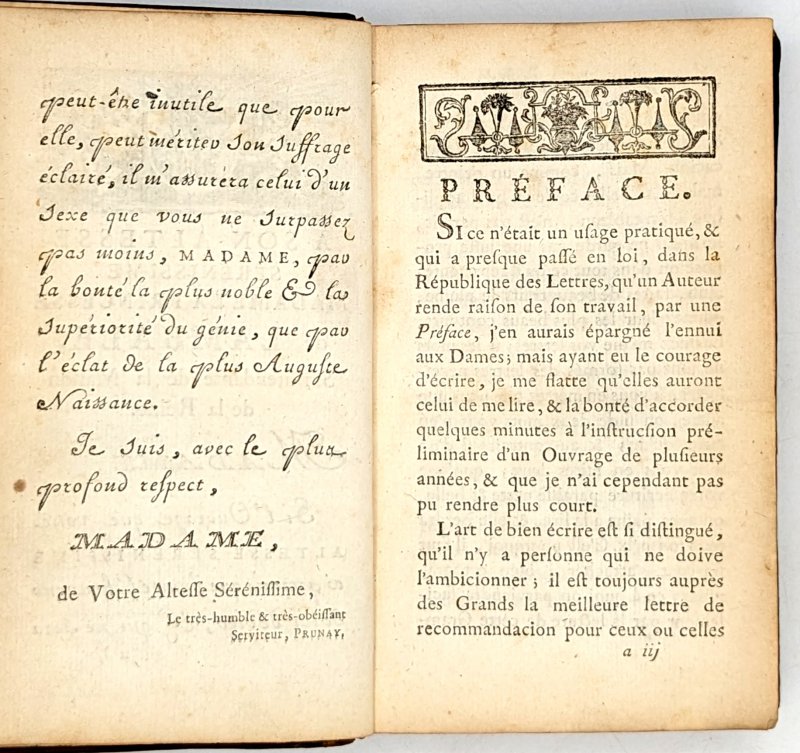 peut-être inutile que pour
elle, peut mériter son suffrage
éclairé, il m'assurera celui d'un
Sexe que vous ne surpassez
pas moins, MADAME, par
la bonté la plus noble & la
supériorité du génie, que par
l'éclat de la plus Auguste
Naissance.
Je suis, avec le plus
profond respect,
MADAME,
de Votre Altesse Sérénissime,
Le très-humble & très-obéissant
Serviteur, PRUNAY,
PRÉFACE.
SI ce n'était un usage pratiqué, &
qui a presque passé en loi, dans la
République des Lettres, qu'un Auteur
rende raison de son travail, par une
Préface, j'en aurais épargné l'ennui
aux Dames; mais ayant eu le courage
d'écrire, je me flatte qu'elles auront
celui de me lire, & la bonté d'accorder
quelques minutes à l'instrucsion pré-
liminaire d'un Ouvrage de plusieurs
années, & que je n'ai cependant pas
pu rendre plus court.
L'art de bien écrire est si distingué,
qu'il n'y a personne qui ne doive
l'ambicionner; il est toujours auprès
des Grands la meilleure lettre de
recommandacion pour ceux ou celles
a iij